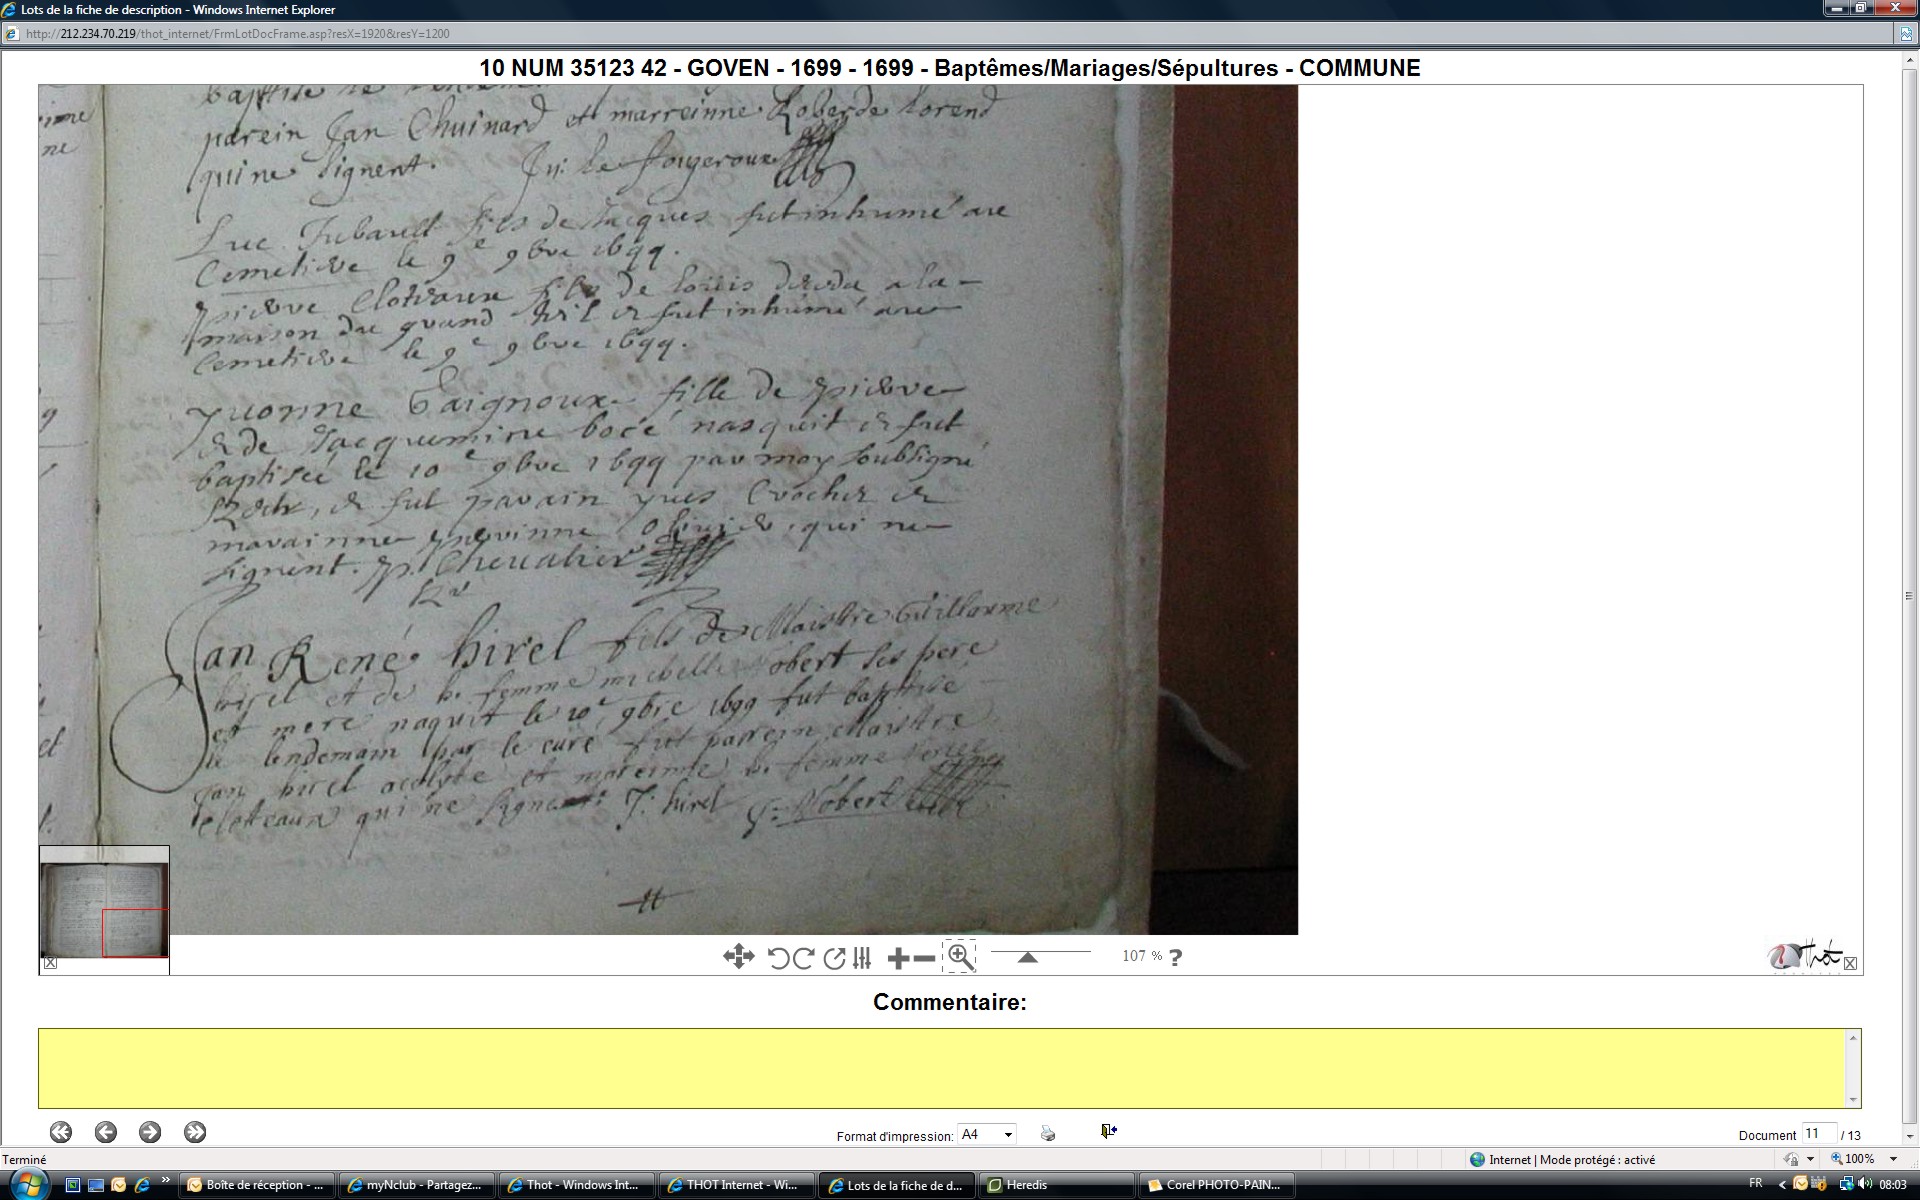 Lots de la fiche de description - Windows Internet Explorer
http://212.234.70.219/thot_internet/FrmLotDocFrame.asp?resX=1920&resY=1200
10 NUM 35123 42 - GOVEN - 1699 - 1699 - Baptêmes/Mariages/Sépultures - COMMUNE
parein Jan Chuinard et marreinne Roberde lorend
qui ne signent. Jn: le fougeroux
Luc Jubault fils de Jacques fut inhumé au
Cemetiere le 9e 9bre 1699.
pierre Cloteaux fils de loüis deceda a la
maison du grand hil et fut inhumé au
Cemetiere le 9e 9bre 1699.
yvonne Gaignoux fille de pierre
et de Jacquemine bocé nasquit et fut
baptisée le 10e 9bre 1699 par moy soubsigné
Rectr, et fut parain yves Crocher et
marainne perrinne Olivier, qui ne
signent. p. Chevalier
Rr
Jan René hirel fils de Maistre Guillaume
hirel et de h. femme michelle Robert ses pere
et mere naquit le 10e 9bre 1699 fut baptise
le lendemain par le curé fut parrein Maistre
Jan hirel acolyte et mareinne h. femme
cloteaux qui ne signent. J: hirel G: Robert
107 %
?
Thot
Commentaire:
Format d'impression: A4
Document 11 / 13
Terminé
Internet | Mode protégé : activé
100%
Boîte de réception - ...
myNclub - Partagez...
Thot - Windows Int...
THOT Internet - Wi...
Lots de la fiche de d...
Heredis
Corel PHOTO-PAIN...
FR
08:03